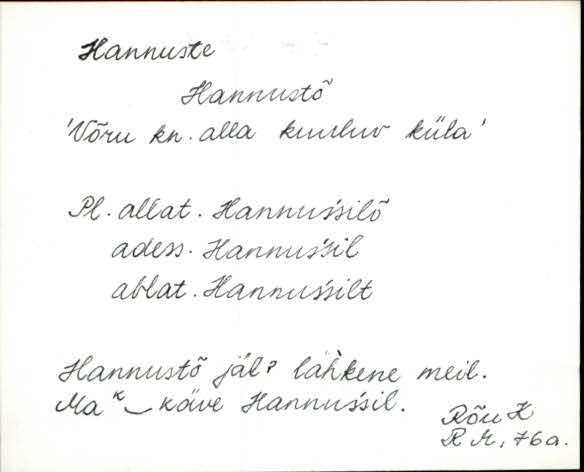 Hannuste
Hannustõ
'Võru kn. alla kuuluv küla'
Pl. allat. Hannuśśilõ
adess. Hannuśśil
ablat. Hannuśśilt
Hannustõ jäl? lähkene meil.
Ma ᴷ‿käve Hannuśśil.
Rõu K
R M, 76 a.